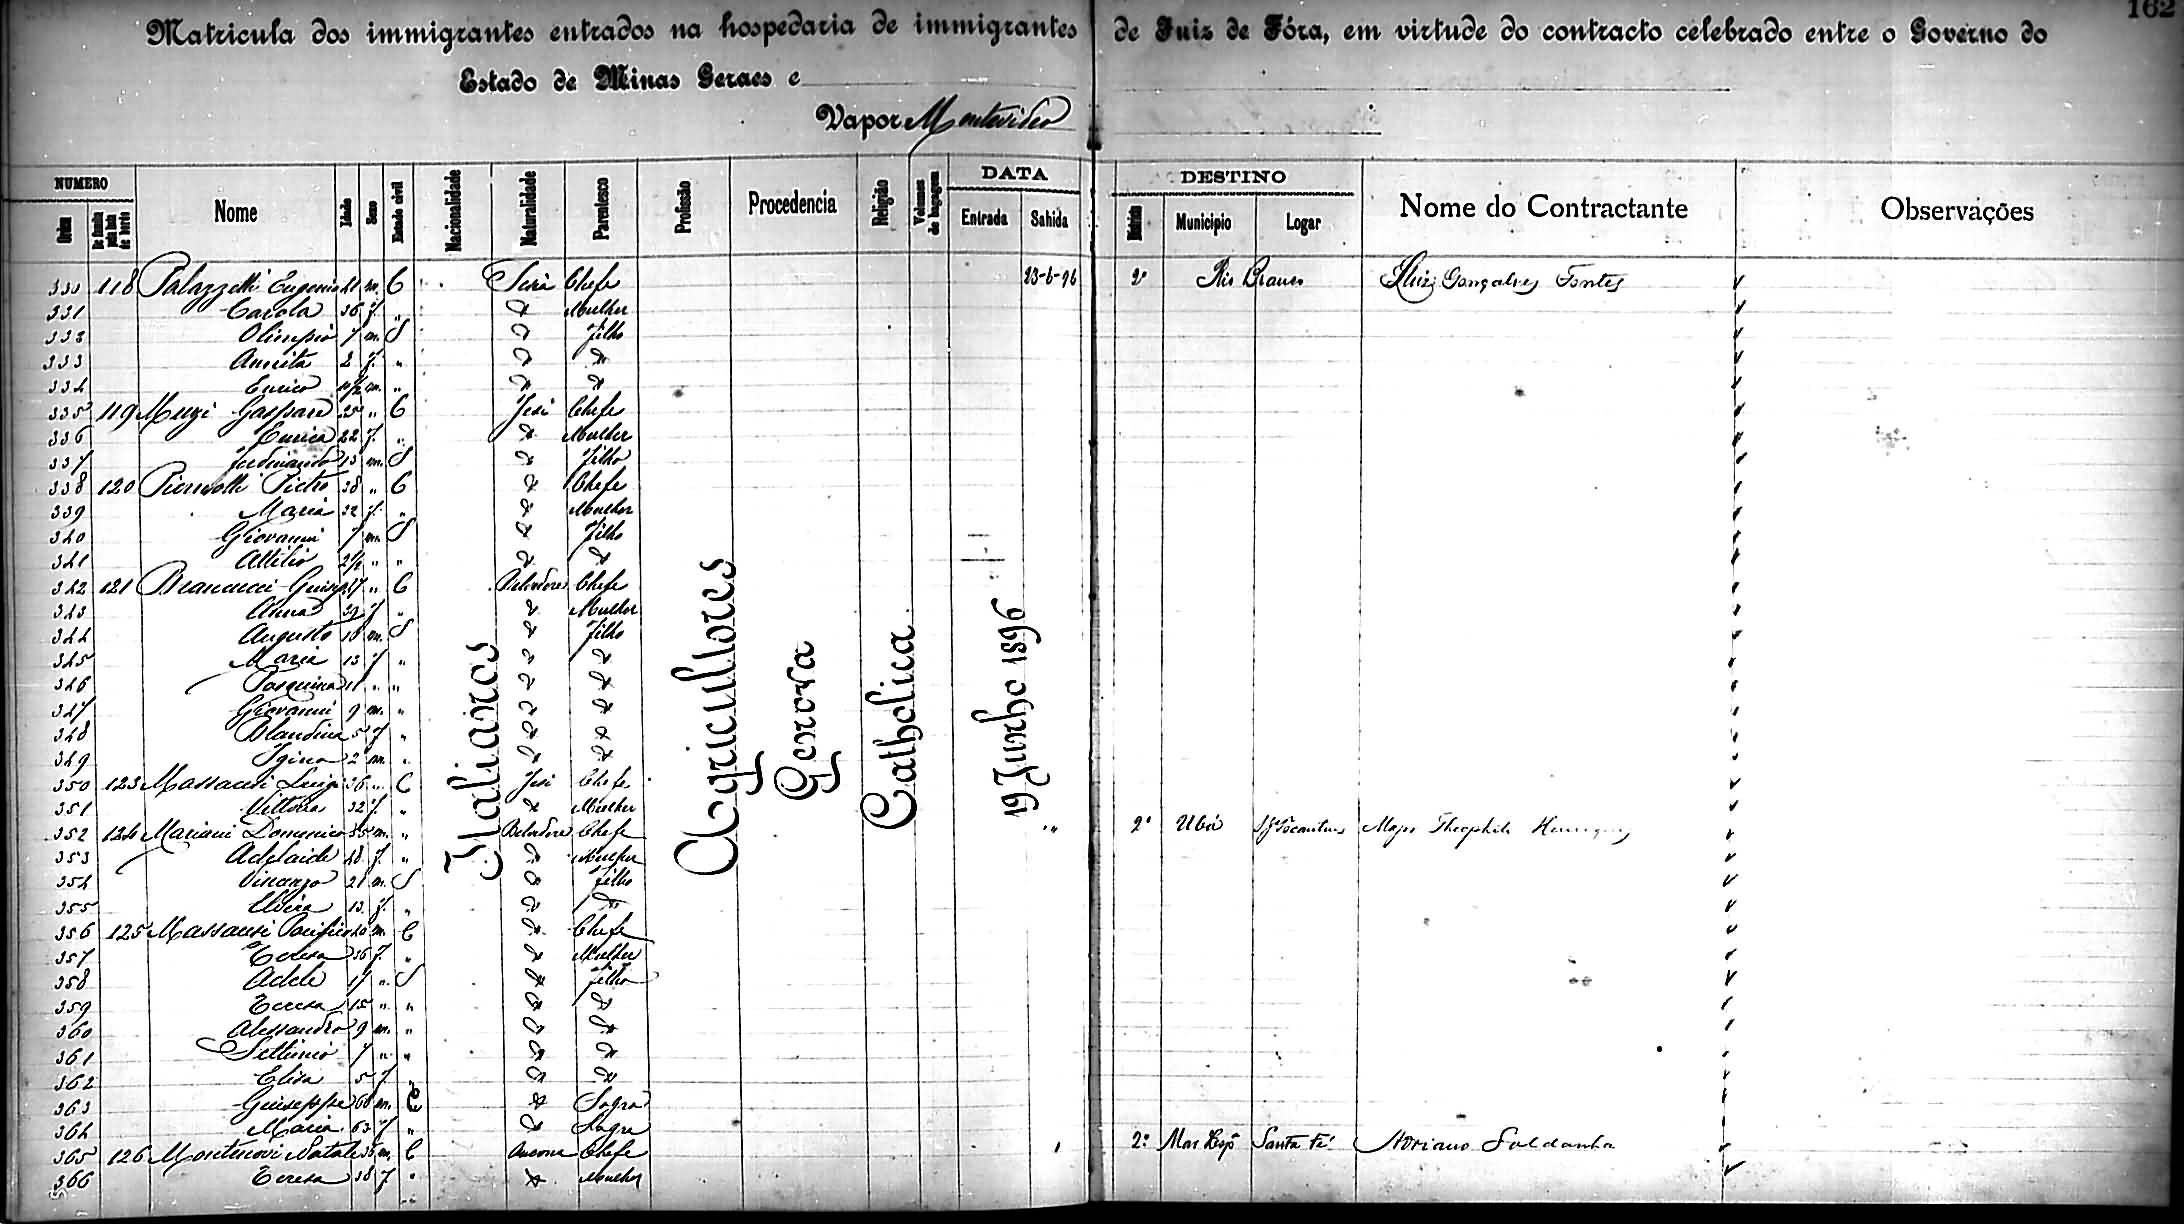 162
Matricula dos immigrantes entrados na hospedaria de immigrantes de Juiz de Fóra, em virtude do contracto celebrado entre o Governo do
Estado de Minas Geraes e
Vapor Montevideo
NUMERO Nome Idade Sexo Estado civil Nacionalidade Naturalidade Parentesco Profissão Procedencia Religião Volumes de bagagem DATA DESTINO Nome do Contractante Observações
Ordem Entrada Sahida Districto Municipio Logar
Italianos Agricultores Genova Catholica 19 Junho 1896
330 118 Palazzetti Eugenio 41 m. C Chefe 23-6-96 2º Rio Branco Luiz Gonçalves Fontes
331 Carola 36 f. " Mulher
332 Olimpio 7 m. S Filho
333 2 f. "
334 Enrico m. "
335 119 Gaspare 25 " C Jesi Chefe
336 Enrica 22 f. " Mulher
337 Ferdinando 13 m. S Filho
338 120 Pietro 38 " C Chefe
339 Maria 32 f. " Mulher
340 Giovanni 7 m. S Filho
341 Attilio 2½ " "
342 121 Brancucci " C Belvedere Chefe
343 Anna 39 f " Mulher
344 Augusto 18 m. S Filho
345 Maria 13 f "
346 Pasquina 11 " "
347 Giovanni 9 m. "
348 Blandina 5 f "
349 Igino 2 m. "
350 123 Massacesi Luigi 36 " C Jesi Chefe
351 Vittoria 32 f. " Mulher
352 124 Mariani Domenico 55 m. " Belvedere Chefe " 2º Ubá Tocantins Major Theophilo Henriques
353 Adelaide 48 f. " Mulher
354 Vincenzo 21 m. S Filho
355 Elvira 13 f. "
356 125 Massacesi Pacifico 40 m. C Chefe
357 Teresa 36 f. " Mulher
358 Adele 17 " S Filho
359 Teresa 15 " "
360 Alessandro 9 m. "
361 Settimio 7 " "
362 Elisa 5 f. "
363 Giuseppe 66 m. C Sogro
364 Maria 63 f " Sogra
365 126 Montenovi Natale 35 m. C Ancona Chefe 2º Mar Hesp Santa Fé Adriano Saldanha
366 Teresa 38 f " Mulher